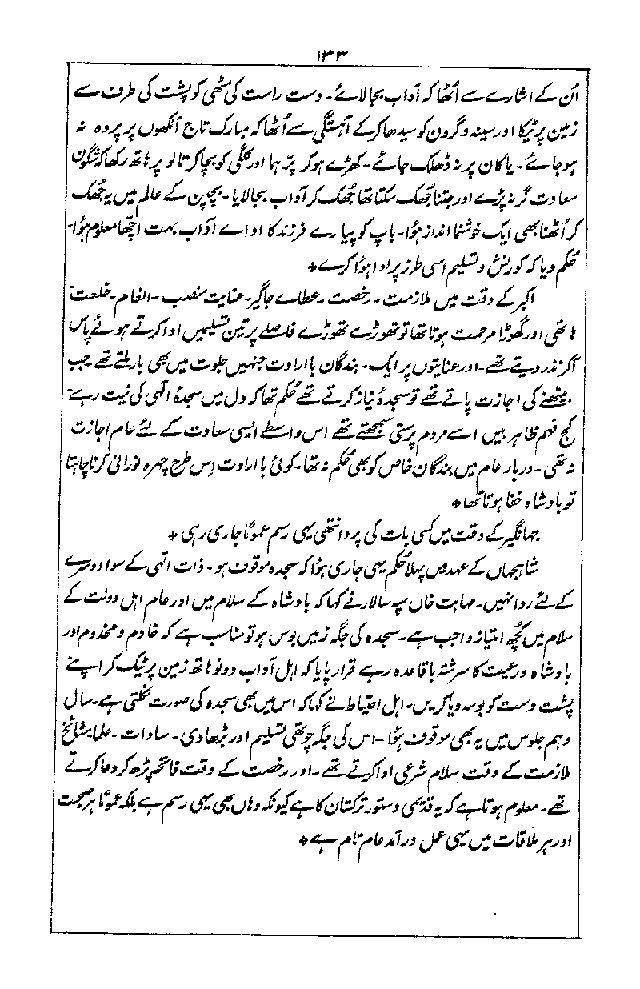 ۱۳۳
اُن کے اشارے سے اُٹھا کہ آداب بجا لائے ۔ دست راست کی مٹھی کو پشت کی طرف سے
زمین پر ٹیکا اور سینہ و گردن کو سیدھا کر کے آہستگی سے اُٹھا کہ مبارک تاج آنکھوں پر پردہ نہ
ہو جائے ۔ یا کان پر نہ ڈھلک جائے ۔ کھڑے ہو کر پر ہما اور کلغی کو بچا کر تالو پر ہاتھ رکھا کہ شگون
سعادت گر نہ پڑے اور جتنا جھک سکتا تھا جھک کر آداب بجا لایا ۔ بچپن کے عالم میں یہ جھک
کر اُٹھنا بھی ایک خوشنما انداز ہوا ۔ باپ کو پیارے فرزند کا ادائے آداب بہت اچھا معلوم ہوا ۔
حکم دیا کہ کورنش و تسلیم اسی طرز پر ادا ہوا کرے *
اکبر کے وقت میں ملازمت ۔ رخصت ۔ عطائے جاگیر ۔ عنایت منصب ۔ انعام ۔ خلعت
ہاتھی اور گھوڑا مرحمت ہوتا تھا تو تھوڑے تھوڑے فاصلے پر تین تسلیمیں ادا کرتے ہوئے پاس
آکر نذر دیتے تھے ۔ اور عنایتوں پر ایک ۔ بندگان با ارادت جنہیں خلوت میں بھی بار ملتے تھے جب
بیٹھنے کی اجازت پاتے تھے تو سجدۂ نیاز کرتے تھے حکم تھا کہ دل میں سجدۂ الٰہی کی نیت رہے
کج فہم ظاہر بیں اسے مردم پرستی سمجھتے تھے اس واسطے ایسی سعادت کے لئے عام اجازت
نہ تھی ۔ دربار عام میں بندگان خاص کو بھی حکم نہ تھا ۔ کوئی با ارادت اس طرح چہرہ نورانی کرنا چاہتا
تو بادشاہ خفا ہوتا تھا *
جہانگیر کے وقت میں کسی بات کی پروا نہ تھی یہی رسم عموماً جاری رہی *
شاہجہاں کے عہد میں پہلا حکم یہی جاری ہوا کہ سجدہ موقوف ہو ۔ ذات الٰہی کے سوا دوسرے
کے لئے روا نہیں ۔ مہابت خاں سپہ سالار نے کہا کہ بادشاہ کے سلام میں اور عام اہل دولت کے
سلام میں کچھ امتیاز واجب ہے ۔ سجدہ کی جگہ زمیں بوس ہو تو مناسب ہے کہ خادم و مخدوم اور
بادشاہ و رعیت کا سررشتہ باقاعدہ رہے قرار پایا کہ اہل آداب دونو ہاتھ زمین پر ٹیک کر اپنے
پشت دست کو بوسہ دیا کریں ۔ اہل احتیاط نے کہا کہ اس میں بھی سجدہ کی صورت نکلتی ہے ۔ سال
دہم جلوس میں یہ بھی موقوف ہوا ۔ اس کی جگہ چوتھی تسلیم اور بڑھا دی ۔ سادات ۔ علما ۔ مشائخ
ملازمت کے وقت سلام شرعی ادا کرتے تھے ۔ اور رخصت کے وقت فاتحہ پڑھ کر دعا کرتے
تھے ۔ معلوم ہوتا ہے کہ یہ قدیمی دستور ترکستان کا ہے کیونکہ وہاں بھی یہی رسم ہے بلکہ عموماً ہر صحبت
اور ہر ملاقات میں یہی عمل درآمد عام تام ہے *